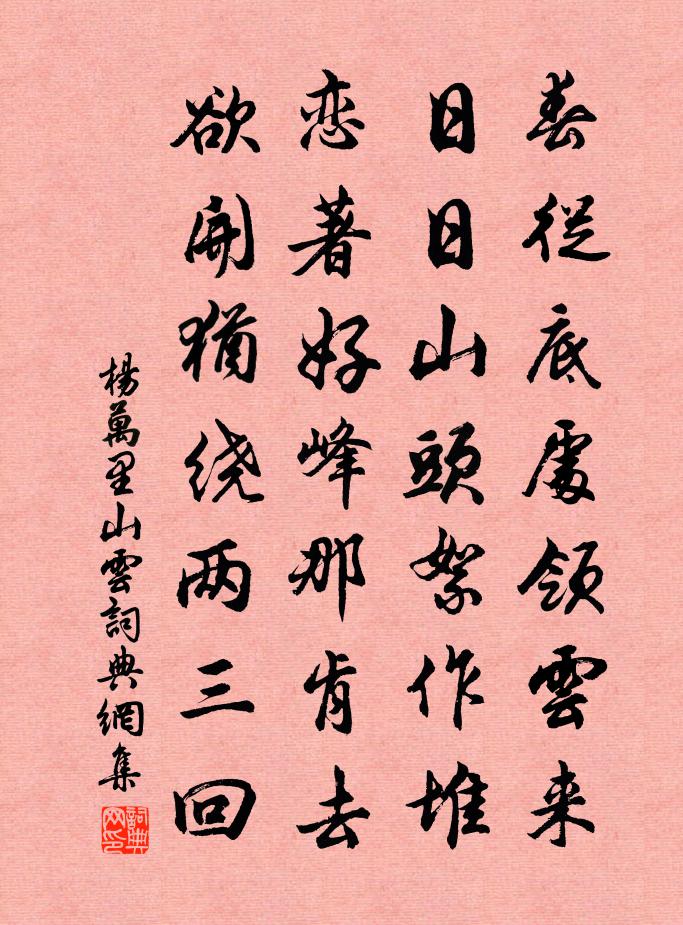 春從底處領雲来
日日山頭絮作堆
恋著好峰那肯去
欲開猶绕两三回
楊萬里山雲詞典網集
詞典网印